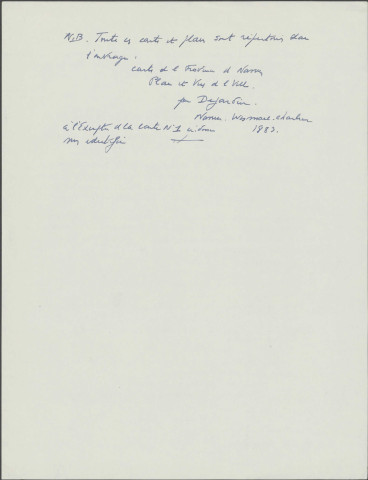 N.B. Toutes ces cartes et plans sont répertoriés dans
l'ouvrage.
Cartes de la Province de Namur
Plans et Vues de la Ville.
par Dejardin.
Namur. Wesmael-Charlier
à l'Exception de la Carte N° 1 ci-dessus 1883.
non identifiée